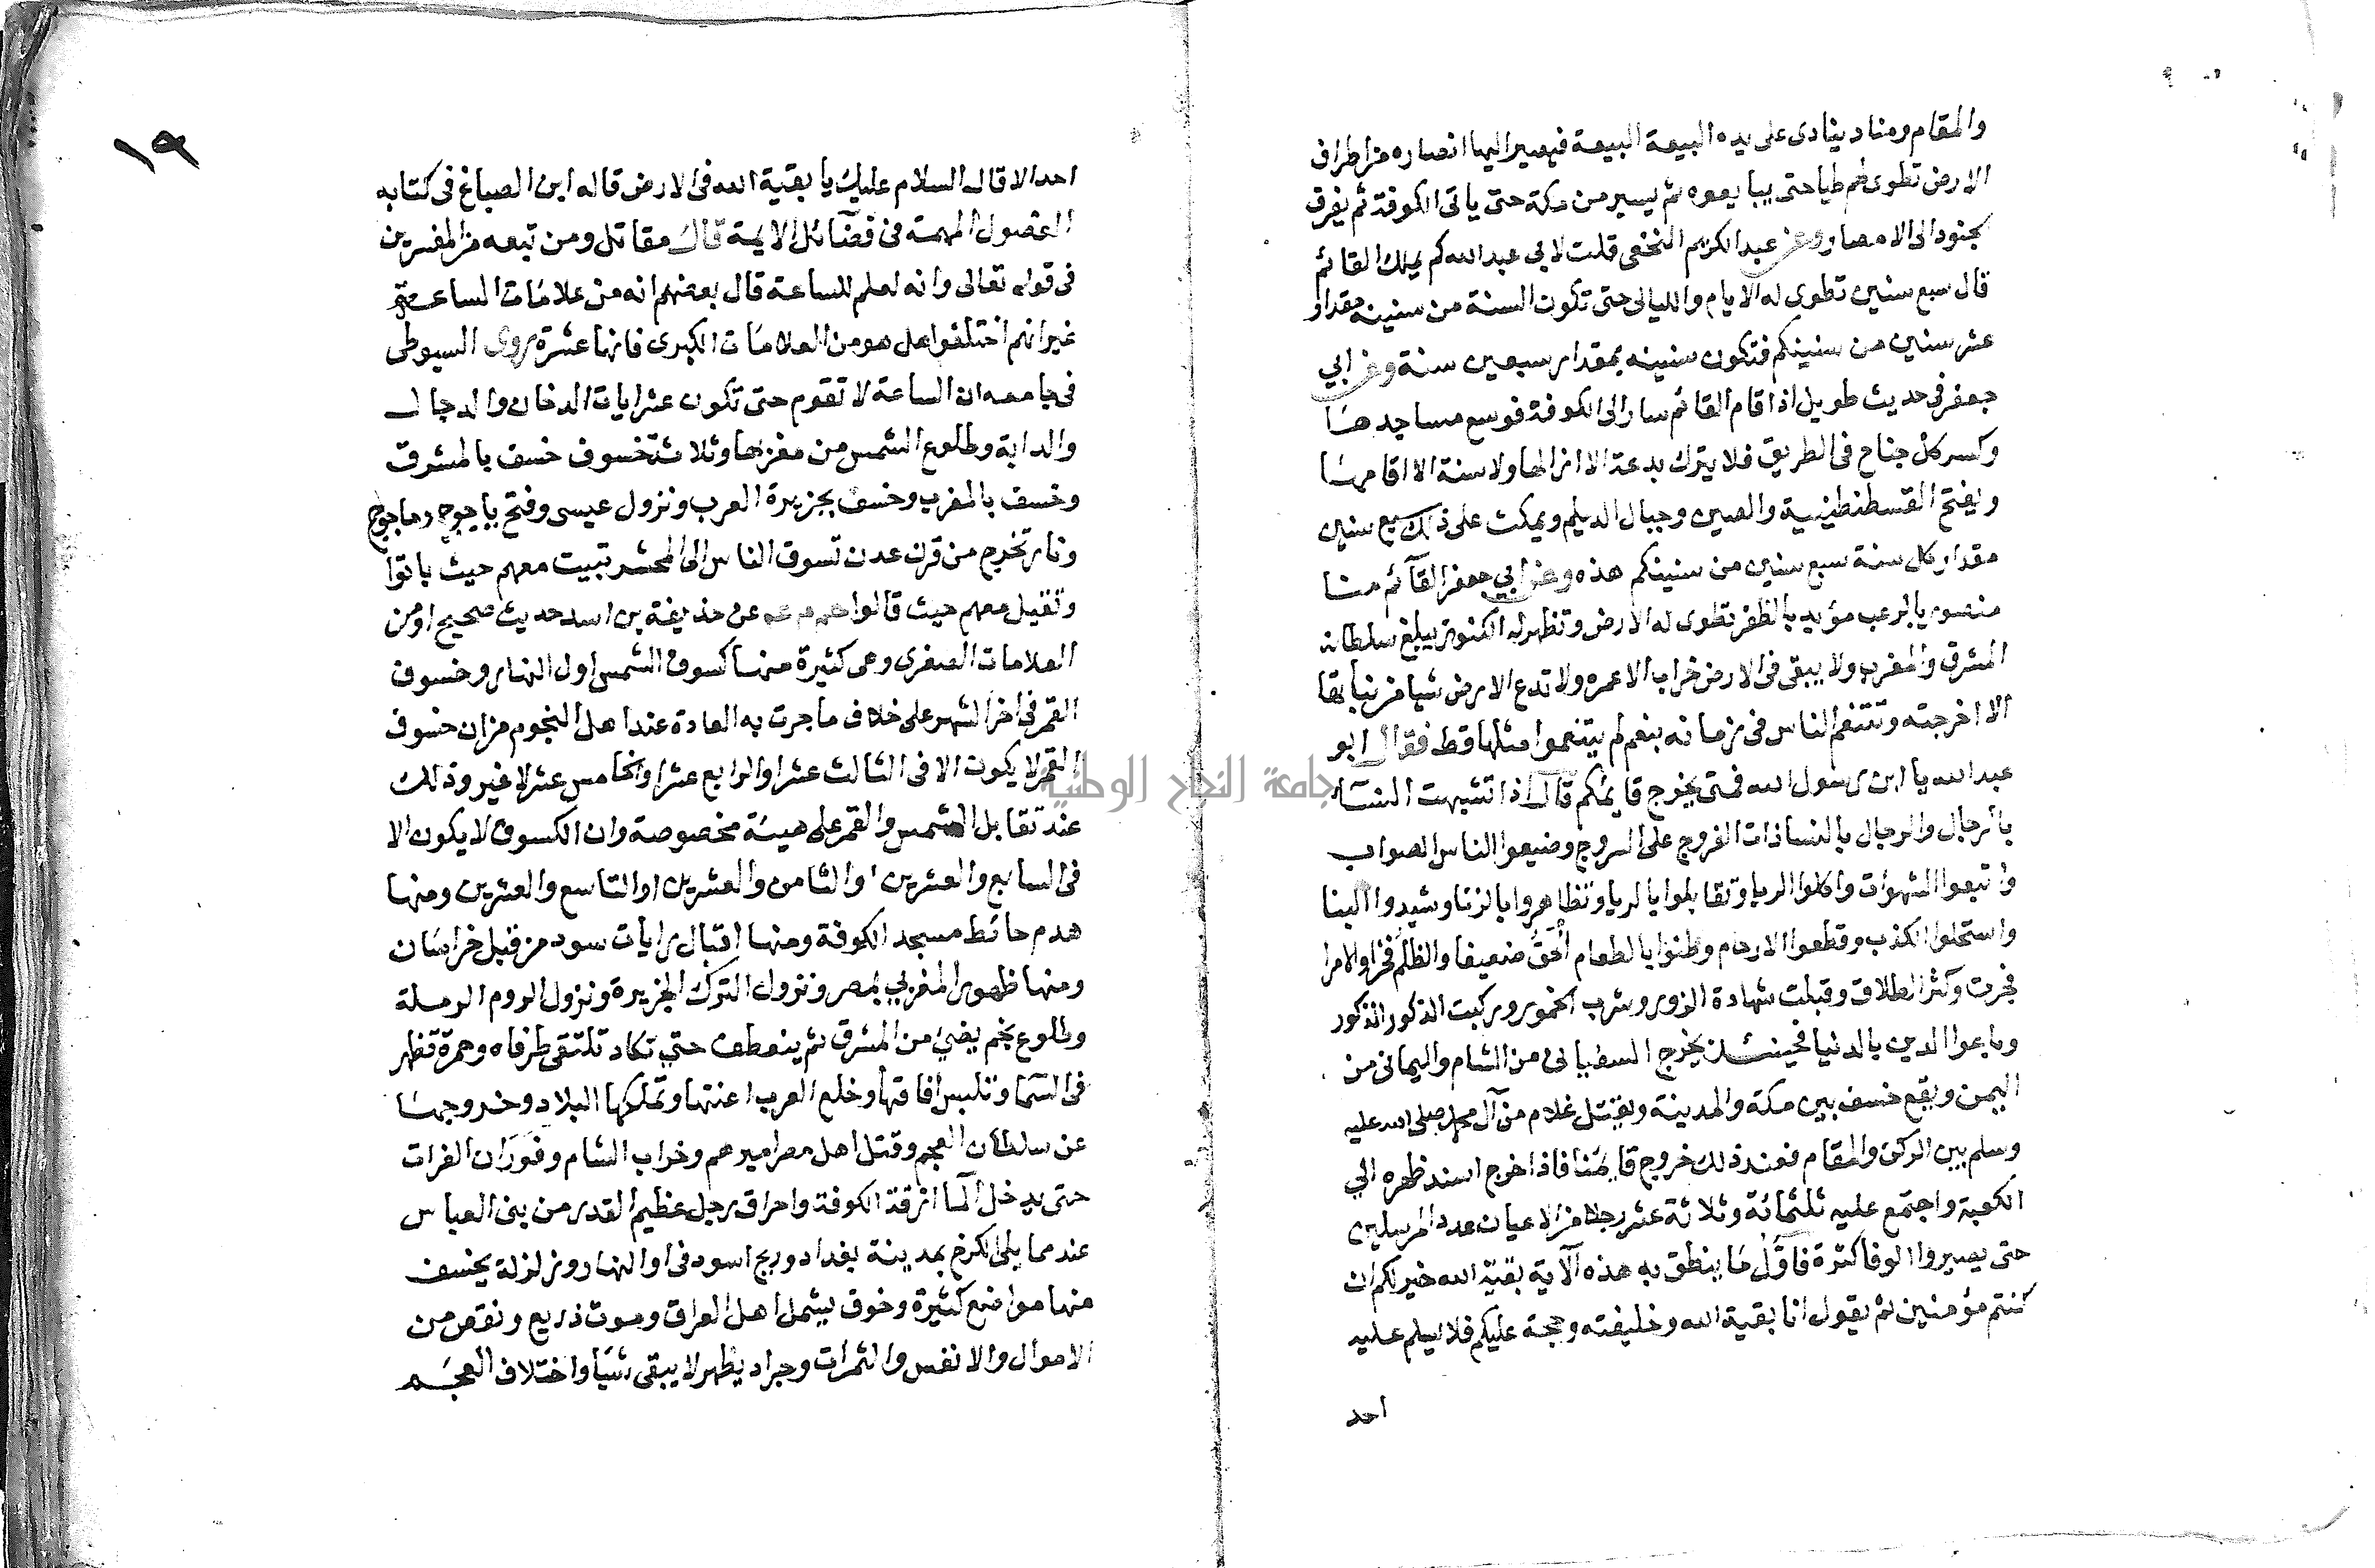 والمقام ومناد ينادى على يده البيعة البيعة فيصير اليها انصاره من اطراف
الارض تطوى لهم طيا حتى يبايعوه ثم يسير من مكة حتى ياتى الكوفة ثم يفرق
الجنود الى الامصار وعن عبد الكريم النخعى قلت لابى عبد الله كم يملك القائم
قال سبع سنين تطوى له الايام والليالى حتى تكون السنة من سنينه مقدار
عشر سنين من سنينكم فتكون سنينه بمقدار سبعين سنة وعن ابي
جعفر فى حديث طويل اذا قام القائم سار الى الكوفة فوسع مساجدها
وكسر كل جناح فى الطريق فلا يترك بدعة الا ازالها ولا سنة الا اقامها
ويفتح القسطنطينية والصين وجبال الديلم ويمكث على ذلك سبع سنين
مقدار كل سنة سبع سنين من سنينكم هذه وعن ابي جعفر القآئم منا
منصور بالرعب مؤيد بالظفر تطوى له الارض وتظهر له الكنوز يبلغ سلطانه
المشرق والمغرب ولا يبقى فى الارض خراب الا عمره ولا تدع الارض شيا من نباتها
الا اخرجته وتتنعم الناس فى زمانه بنعم لم يتنعموا مثلها قط فقال ابو
عبد الله يا ابن رسول الله فمتى يخرج قايمكم قال اذا تشبهت النسآء
بالرجال والرجال بالنسا ذات الفروج على السروج وضيعوا الناس الصواب
واتبعوا الشهوات واكلوا الربا وتقابلوا بالريا وتظاهروا بالزنا وشيدوا البنا
واستحلوا الكذب وقطعوا الارحام وظنوا بالطعام الحق ضعيفا والظلم فخرا والامرا
فجرت وآثر الطلاق وقبلت شهادة الزور وشرب الخمور وركبت الذكور الذكور
وباعوا الدين بالدنيا فحينئذ يخرج السفيانى من الشام واليمانى من
اليمن ويقع خسف بين مكة والمدينة ويقتل غلام من آل محمد صلى الله عليه
وسلم بين الركن والمقام فعند ذلك خروج قايمنا فاذا خرج اسند ظهره الي
الكعبة واجتمع عليه ثلثمائة وثلاثة عشر رجلا من الاعيان عدد المرسلين
حتى يصيروا الوفا كثرة فاول ما ينطق به هذه الآية بقية الله خير لكم ان
كنتم مؤمنين ثم يقول انا بقية الله وخليفته وحجة عليكم فلا يسلم عليه
احد
١٩
احد الا قال السلام عليك يا بقية الله فى الارض قاله ابن الصباغ فى كتابه
الفصول المهمة فى فضآئل الايمة قال مقاتل ومن تبعه من المفسرين
فى قوله تعالى وانه لعلم للساعة قال بعضهم انه من علامات الساعة
غير انهم اختلفوا هل هو من العلامات الكبرى فانها عشرة روى السيوطى
فى جامعه ان الساعة لا تقوم حتى تكون عشر ايات الدخان والدجال
والدابة وطلوع الشمس من مغربها وثلاثة خسوف خسف بالمشرق
وخسف بالمغرب وخسف بجزيرة العرب ونزول عيسى وفتح ياجوج وماجوج
ونار تخرج من قرن عدن تسوق الناس الى المحشر تبيت معهم حيث باتوا
وتقيل معهم حيث قالوا حم م عم عن حذيفة بن اسد حديث صحيح او من
العلامات الصغرى وهى كثيرة منها كسوف الشمس اول النهار وخسوف
القمر فى اخر الشهر على خلاف ما جرت به العادة عند اهل النجوم من ان خسوف
القمر لا يكون الا فى الثالث عشر او الرابع عشر او الخامس عشر لا غير وذلك
عند تقابل الشمس والقمر على هيئة مخصوصة وان الكسوف لا يكون الا
فى السابع والعشرين او الثامن والعشرين او التاسع والعشرين ومنها
هدم حائط مسجد الكوفة ومنها اقبال رايات سود من قبل خراسان
ومنها ظهور المغربي بمصر ونزول الترك الجزيرة ونزول الروم الرملة
وطلوع نجم يضئ من المشرق ثم ينعطف حتي تكاد تلتقى طرفاه وحمرة تظهر
فى السما وتلبس افاقها وخلع العرب اعنتها وتملكها البلاد وخروجها
عن سلطان العجم وقتل اهل مصر اميرهم وخراب الشام وفوران الفرات
حتى يدخل الما ازقة الكوفة واحراق رجل عظيم القدر من بنى العباس
عند مما يلى الكرخ بمدينة بغداد وريح اسود فى او النهار وزلزلة يخسف
منها مواضع كثيرة وخوف يشمل اهل العراق وموت ذريع ونقص من
الاموال والانفس والثمرات وجراد يظهر لا يبقى شيا واختلاف العجم
جامعة النجاح الوطنية